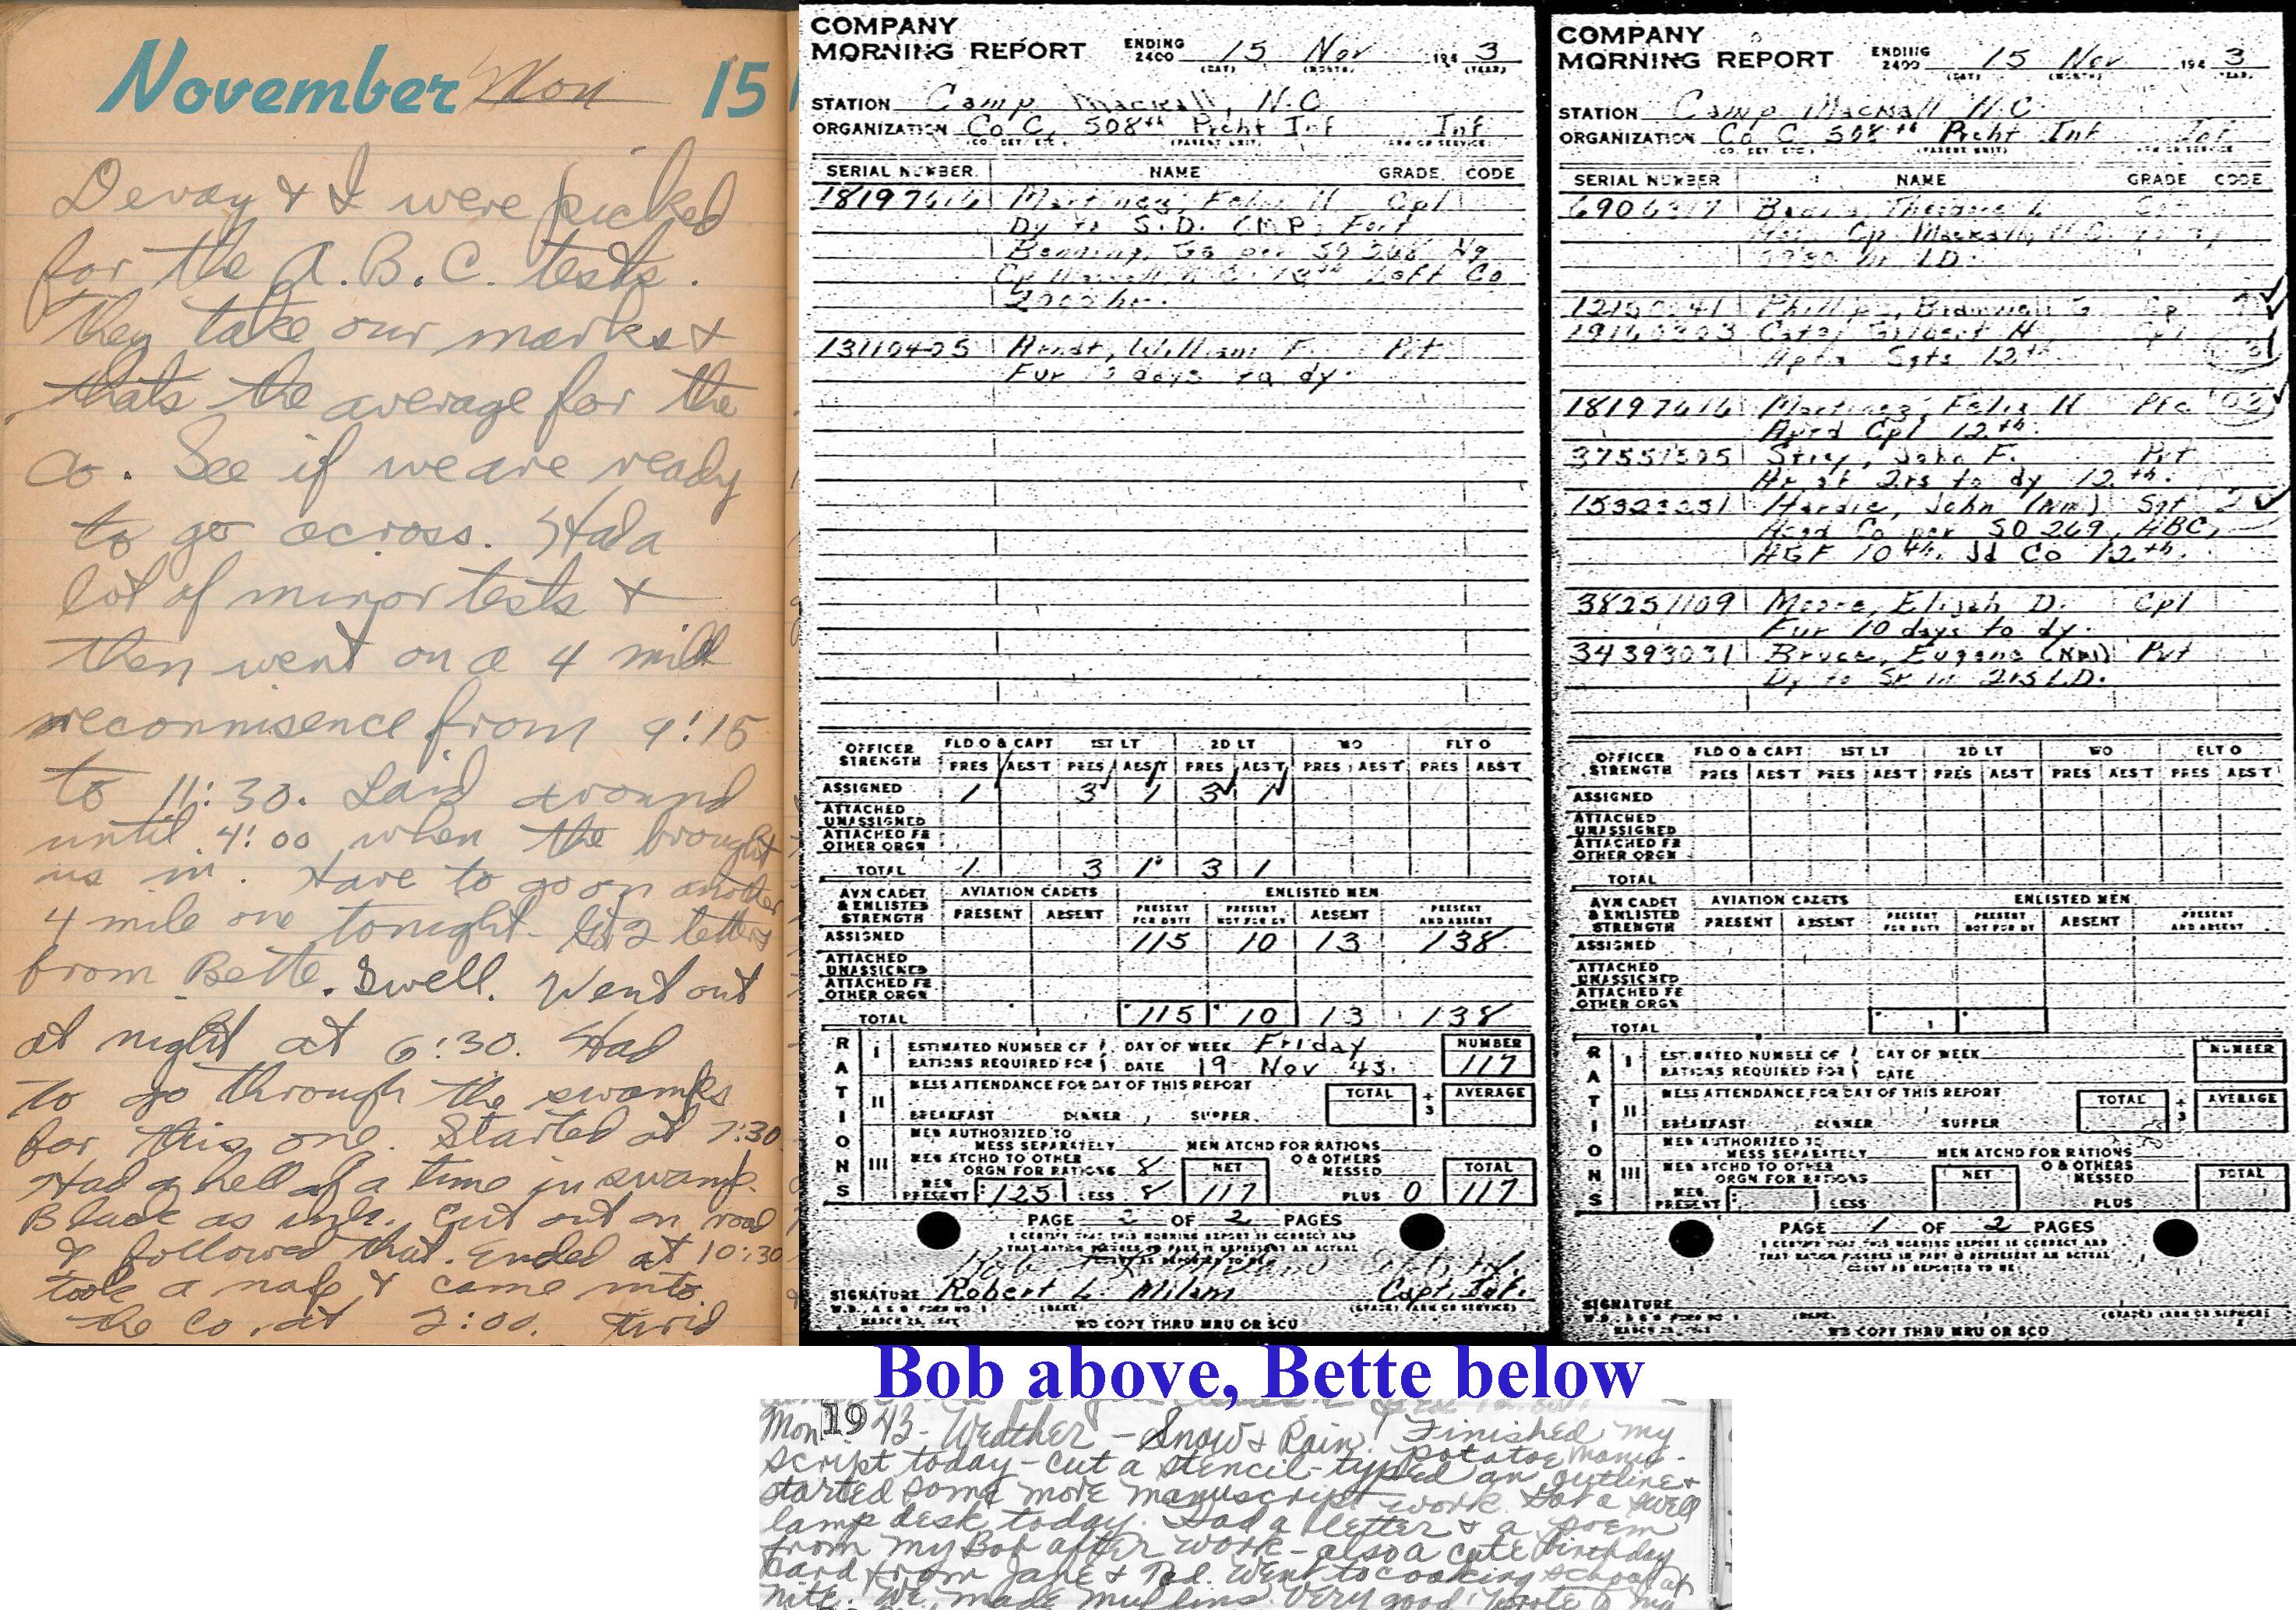 November Mon 15
Devay & I were picked
for the A.B.C. tests.
they take our marks &
thats the average for the
co. See if we are ready
to go across. Had a
lot of minor tests &
then went on a 4 mile
reconnisence from 9:15
to 11:30. Laid around
until 4:00 when the brought
us in. Have to go on another
4 mile one tonight. Got 2 letters
from Bette. Swell. Went out
at night at 6:30. Had
to go through the swamps
for this one. Started at 7:30
Had a hell of a time in swamp.
Black as ink. Cut out on road
& followed that. Ended at 10:30
took a nap & came into
the Co. at 2:00. Tired
COMPANY
MORNING REPORT ENDING 2400 15 Nov 194 3
(DAY) (MONTH) (YEAR)
STATION Camp Mackall, N.C
ORGANIZATION Co C, 508th Prcht Inf Inf
(CO. DET. ETC.) (PARENT UNIT) (ARM OR SERVICE)
SERIAL NUMBER NAME GRADE CODE
18197616 Martinez, Felix H Cpl
Dy to S.D. CMP, Fort
Benning, Ga per SO 268 Hq
Cp Mackall N.C 13th Loft Co
2000 hr.
13110405 Arndt, William F. Pvt
Fur 10 days to dy.
OFFICER STRENGTH FLD O & CAPT 1ST LT 2D LT WO FLT O
PRES ABS'T PRES ABS'T PRES ABS'T PRES ABS'T PRES ABS'T
ASSIGNED 1 3 1 3 1
ATTACHED UNASSIGNED
ATTACHED FR OTHER ORGN
TOTAL 1 3 1 3 1
AVN CADET & ENLISTED STRENGTH AVIATION CADETS ENLISTED MEN
PRESENT ABSENT PRESENT FOR DUTY PRESENT NOT FOR DY ABSENT PRESENT AND ABSENT
ASSIGNED 115 10 13 138
ATTACHED UNASSIGNED
ATTACHED FR OTHER ORGN
TOTAL 115 10 13 138
RATIONS
I ESTIMATED NUMBER OF DAY OF WEEK Friday NUMBER
RATIONS REQUIRED FOR DATE 19 Nov 43. 117
II MESS ATTENDANCE FOR DAY OF THIS REPORT TOTAL ÷ 3 AVERAGE
BREAKFAST DINNER SUPPER
III MEN AUTHORIZED TO MESS SEPARATELY MEN ATCHD FOR RATIONS
MEN ATCHD TO OTHER ORGN FOR RATIONS 8 NET O & OTHERS MESSED TOTAL
MEN PRESENT 125 LESS 8 117 PLUS 0 117
PAGE 2 OF 2 PAGES
I CERTIFY THAT THIS MORNING REPORT IS CORRECT AND
SIGNATURE Robert L. Milam Capt, Inf.
(NAME) (GRADE) (ARM OR SERVICE)
NO COPY THRU MRU OR SCU
COMPANY
MORNING REPORT ENDING 2400 15 Nov 194 3
(DAY) (MONTH) YEAR
STATION Camp Mackall N.C
ORGANIZATION Co C 508th Prcht Inf Inf
(CO. DET. ETC.) (PARENT UNIT)
SERIAL NUMBER NAME GRADE CODE
Theodore L
Cp Mackall, N.C
LD.
Gilbert H Cpl
Aptd Sgts 12th
18197616 Martinez, Felix H Pfc 02
Aptd Cpl 12th.
John F. Pvt
to dy 12th.
Hardie, John (NMI) Sgt
Asgd Co per SO 269, ABC,
AGF 10th. Jd Co 12th.
38251109 Moore, Elijah D. Cpl
Fur 10 days to dy.
34393031 Bruce, Eugene (NMI) Pvt
Dy to Sk in LD.
OFFICER STRENGTH FLD O & CAPT 1ST LT 2D LT WO FLT O
PRES ABS'T PRES ABS'T PRES ABS'T PRES ABS'T PRES ABS'T
ASSIGNED
ATTACHED UNASSIGNED
ATTACHED FR OTHER ORGN
TOTAL
AVN CADET & ENLISTED STRENGTH AVIATION CADETS ENLISTED MEN
PRESENT ABSENT PRESENT FOR DUTY PRESENT NOT FOR DY ABSENT PRESENT AND ABSENT
ASSIGNED
ATTACHED UNASSIGNED
ATTACHED FR OTHER ORGN
TOTAL
RATIONS
I ESTIMATED NUMBER OF DAY OF WEEK NUMBER
RATIONS REQUIRED FOR DATE
II MESS ATTENDANCE FOR DAY OF THIS REPORT TOTAL ÷ 3 AVERAGE
BREAKFAST DINNER SUPPER
III MEN AUTHORIZED TO MESS SEPARATELY MEN ATCHD FOR RATIONS
MEN ATCHD TO OTHER ORGN FOR RATIONS NET O & OTHERS MESSED TOTAL
MEN PRESENT LESS PLUS
PAGE 1 OF 2 PAGES
I CERTIFY THAT THIS MORNING REPORT IS CORRECT AND
THAT RATION FIGURES IN PART III REPRESENT AN ACTUAL
COUNT AS REPORTED TO ME
SIGNATURE
(NAME) (GRADE) (ARM OR SERVICE)
NO COPY THRU MRU OR SCU
Bob above, Bette below
Mon. 1943 - Weather - Snow & Rain! Finished my
potatoe manu-
script today - cut a stencil - typed an outline &
started some more manuscript work. Got a swell
lamp desk today. Had a letter & a poem
from my Bob after work - also a cute birthday
card from Jane & Ted. Went to cooking school at
nite. We made muffins. Very good! Wrote to my